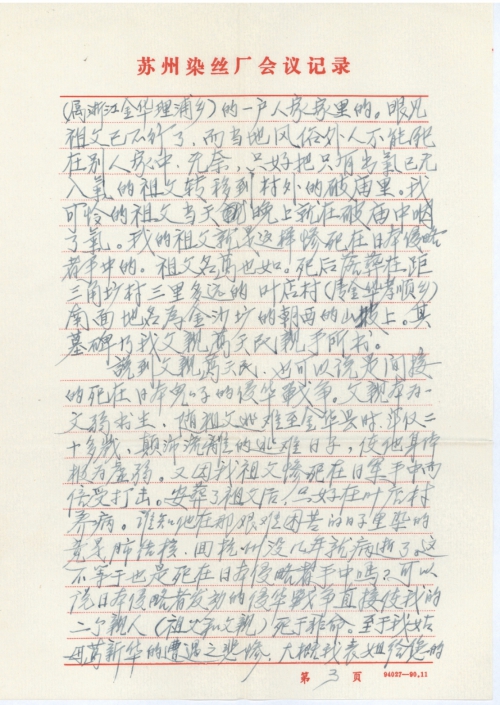 苏州染丝厂会议记录
(属浙江金华理浦乡)的一户人家家里的。眼见
祖父已不行了,而当地风俗外人不能死
在别人家中,无奈,只好把只有出气已无
入气的祖父转移到村外的破庙里。我
可怜的祖父当天晚上就在破庙中咽
了气。我的祖父就是这样惨死在日本侵略
者手中的。祖父名葛也如。死后荒葬在距
三角坊村三里多远的叶店村(属金华孝顺乡)
南面地名为金沙坊的朝西的山坡上。其
墓碑乃我父亲葛天民亲手所书。
说到父亲葛天民,也可以说是间接
的死在日本鬼子的侵华战争。父亲本为
文弱书生,随祖父逃难至金华县时,年仅二
十多岁,颠沛流离的逃难日子,使他身体
极为虚弱。又因我祖父惨死在日寇手中而
倍受打击。安葬了祖父后,只好在叶店村
养病。谁知他在那艰难困苦的日子里染的
竟是肺结核,回杭州没几年就病逝了。这
不等于也是死在日本侵略者手中吗?可以
说日本侵略者发动的侵华战争直接使我的
二个亲人(祖父和父亲)死于非命。至于我姑
母葛新华的遭遇之悲惨,大概我表姐给您的
第 3 页 94037—90.11